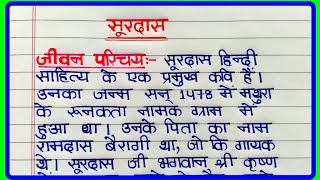 सूरदास
जीवन परिचय:- सूरदास हिन्दी
साहित्य के एक प्रमुख कवि हैं।
उनका जन्म सन् 1478 में मथुरा
के रूनकता नामक ग्राम में
हुआ था। उनके पिता का नाम
रामदास बैरागी था, जो कि गायक
थे। सूरदास जी भगवान श्री कृष्ण